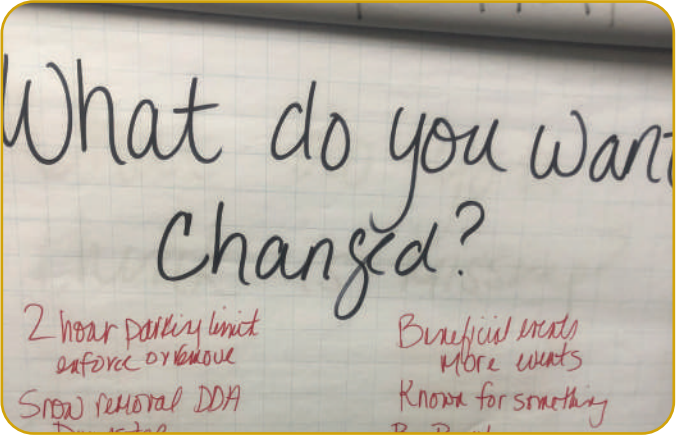 What do you want
Changed?
2 hour parking limit
enforce or remove
Snow removal DDA
Beneficial events
More events
Known for something